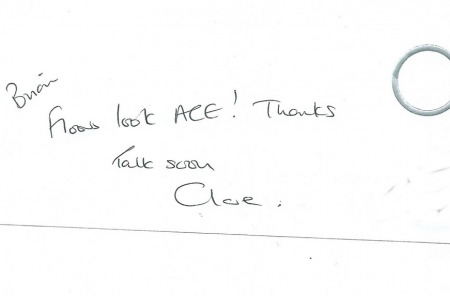 Brian
floors look ACE! Thanks
Talk soon
Clare.